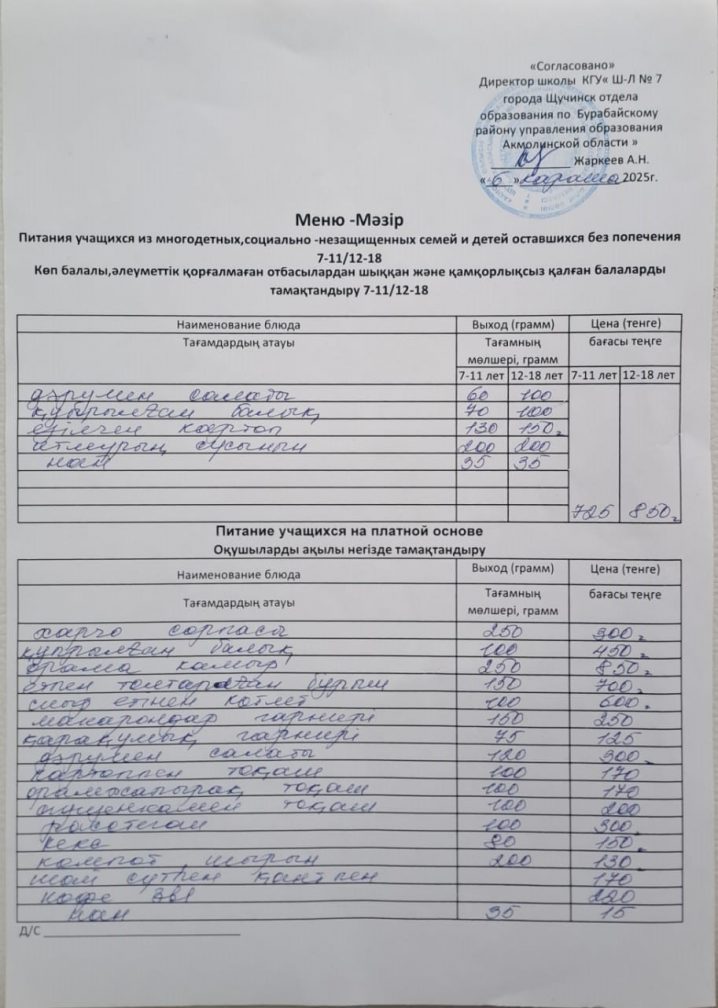 «Согласовано»
Директор школы КГУ« Ш-Л № 7
города Щучинск отдела
образования по Бурабайскому
району управления образования
Акмолинской области »
Жаркеев А.Н.
« 6 » қараша 2025г.
Меню -Мәзір
Питания учащихся из многодетных,социально -незащищенных семей и детей оставшихся без попечения
7-11/12-18
Көп балалы,әлеуметтік қорғалмаған отбасылардан шыққан және қамқорлықсыз қалған балаларды
тамақтандыру 7-11/12-18
Наименование блюда Выход (грамм) Цена (тенге)
Тағамдардың атауы Тағамның мөлшері, грамм бағасы теңге
7-11 лет 12-18 лет 7-11 лет 12-18 лет
дәрумен салаты 60 100
қуырылған балық 70 100
езілген картоп 130 150
сусыны 200 200
нан 35 35
725 850
Питание учащихся на платной основе
Оқушыларды ақылы негізде тамақтандыру
Наименование блюда Выход (грамм) Цена (тенге)
Тағамдардың атауы Тағамның мөлшері, грамм бағасы теңге
харчо сорпасы 250 300
балық 100 450
орама қамыр 250 850
етпен бұрыш 150 700
сиыр етінен котлет 100 600
макарондар гарнирі 150 250
қарақұмық гарнирі 75 125
дәрумен салаты 120 300
картоппен тоқаш 100 170
тоқаш 100 170
тоқаш 100 200
100 300
кекс 80 150
компот, шырын 200 130
шай сүтпен қантпен 170
кофе 3в1 220
нан 35 15
Д/С